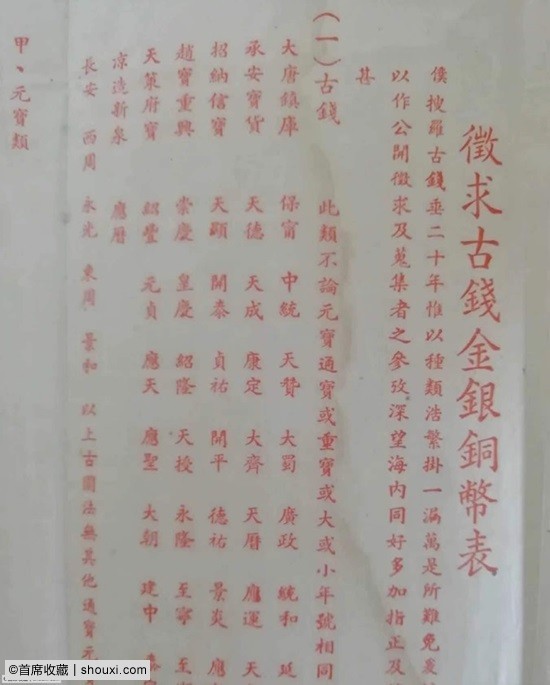 徵求古錢金銀銅幣表
僕搜羅古錢垂二十年惟以種類浩繁掛一漏萬是所難免爰
以作公開徵求及蒐集者之參攷深望海內同好多加指正及
甚
(一)古錢 此類不論元寶通寶或重寶或大或小年號相同
大唐鎮庫 保甯 中統 天贊 大蜀 廣政 統和 延
承安寶貨 天德 天成 康定 大齊 天曆 應運 天
招納信寶 天顯 開泰 貞祐 開平 德祐 景炎 應
趙寶重興 崇慶 皇慶 紹隆 天授 永隆 至寧 至
天策府寶 紹豐 元貞 應天 應聖 大朝 建中
凉造新泉 應曆
長安 西周 永光 東周 景和 以上古圜法無其他通寶元
甲、元寶類
©首席收藏 | shouxi.com